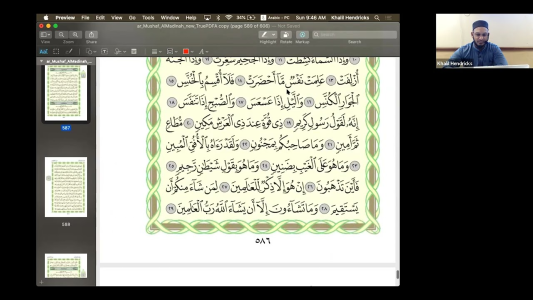 Preview File Edit View Go Tools Window Help
34% Arabic – PC Sun 9:46 AM Khalil Hendricks
ai_Mushaf_AlMadinah_new_TruePDFA copy (page 589 of 608) — Not Saved
View Zoom Share Highlight Rotate Markup Search
587
588
وَإِذَا ٱلسَّمَآءُ كُشِطَتۡ ١١ وَإِذَا ٱلۡجَحِيمُ سُعِّرَتۡ ١٢ وَإِذَا ٱلۡجَنَّةُ
أُزۡلِفَتۡ ١٣ عَلِمَتۡ نَفۡسٞ مَّآ أَحۡضَرَتۡ ١٤ فَلَآ أُقۡسِمُ بِٱلۡخُنَّسِ ١٥
ٱلۡجَوَارِ ٱلۡكُنَّسِ ١٦ وَٱلَّيۡلِ إِذَا عَسۡعَسَ ١٧ وَٱلصُّبۡحِ إِذَا تَنَفَّسَ ١٨
إِنَّهُۥ لَقَوۡلُ رَسُولٖ كَرِيمٖ ١٩ ذِي قُوَّةٍ عِندَ ذِي ٱلۡعَرۡشِ مَكِينٖ ٢٠ مُّطَاعٖ
ثَمَّ أَمِينٖ ٢١ وَمَا صَاحِبُكُم بِمَجۡنُونٖ ٢٢ وَلَقَدۡ رَءَاهُ بِٱلۡأُفُقِ ٱلۡمُبِينِ
٢٣ وَمَا هُوَ عَلَى ٱلۡغَيۡبِ بِضَنِينٖ ٢٤ وَمَا هُوَ بِقَوۡلِ شَيۡطَٰنٖ رَّجِيمٖ ٢٥
فَأَيۡنَ تَذۡهَبُونَ ٢٦ إِنۡ هُوَ إِلَّا ذِكۡرٞ لِّلۡعَٰلَمِينَ ٢٧ لِمَن شَآءَ مِنكُمۡ أَن
يَسۡتَقِيمَ ٢٨ وَمَا تَشَآءُونَ إِلَّآ أَن يَشَآءَ ٱللَّهُ رَبُّ ٱلۡعَٰلَمِينَ ٢٩
٥٨٦
Khalil Hendricks